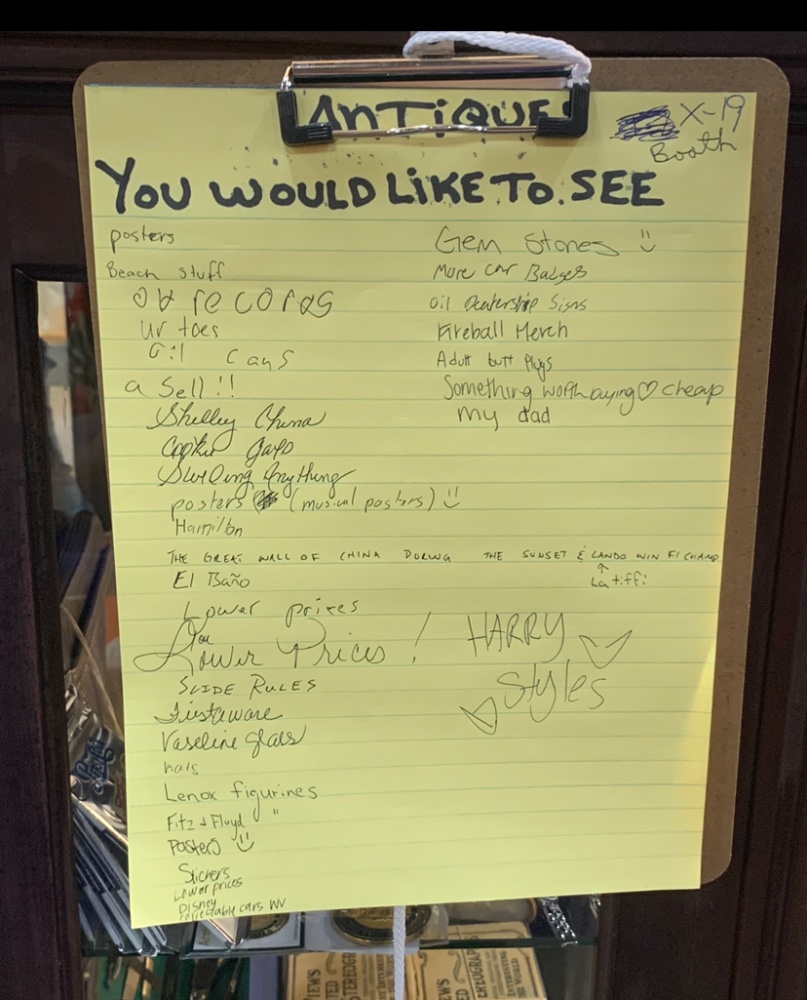 ANTIQUES
X-19
Booth
YOU WOULD LIKE TO SEE
posters
Beach stuff
records
ur toes
Oil cans
a Sell!!
Shelley China
Cookie Jars
Sterling Anything
posters (musical posters) :)
Hamilton
THE GREAT WALL OF CHINA DURING THE SUNSET & LANDO WIN F1 CHAMP
↑
Latiffi
El Baño
Lower prices
You
Lower Prices!
SLIDE RULES
Fiestaware
Vaseline glass
hats
Lenox figurines
Fitz & Floyd "
Posters :)
Stickers
Lower prices
Disney
collectable cars WV
Gem Stones :)
More car Badges
Oil Dealership Signs
Fireball Merch
Adult butt plugs
Something worth buying ♡ cheap
my dad
HARRY
Styles
VIEWS